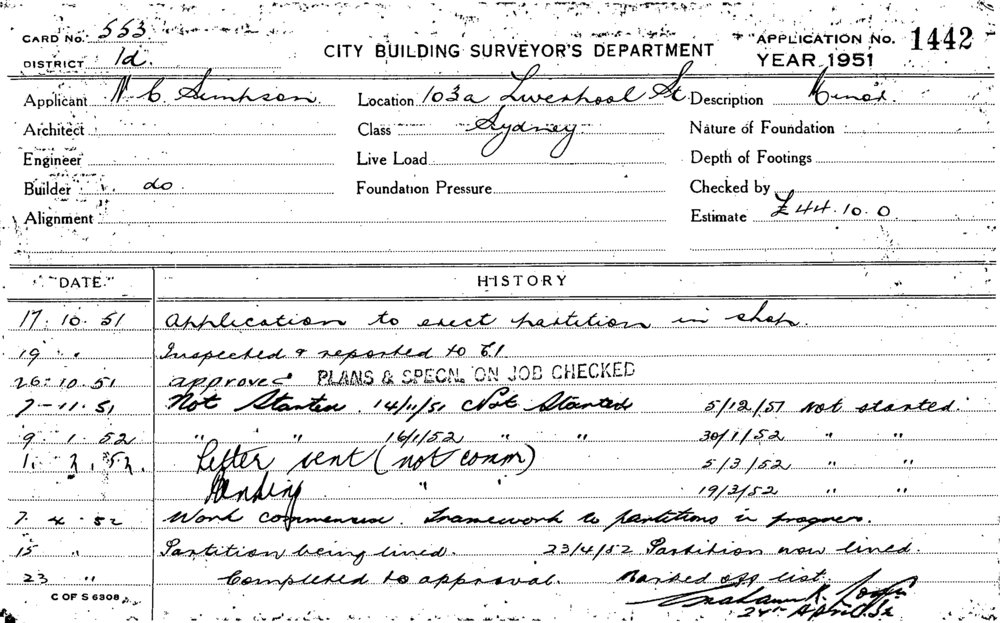 CARD No. 553
CITY BUILDING SURVEYOR'S DEPARTMENT
APPLICATION No. 1442
DISTRICT 1d.
YEAR 1951
Applicant N. C. Simpson Location 103a Liverpool St Description Minor
Architect Class Sydney Nature of Foundation
Engineer Live Load Depth of Footings
Builder do Foundation Pressure Checked by
Alignment Estimate £44.10.0
DATE. HISTORY
17.10.51 Application to erect partition in shop.
19 " Inspected & reported to
26.10.51 approved PLANS & SPECN. ON JOB CHECKED
7-11.51 Not Started. 14/11/51 Not Started 5/12/51 not started.
9.1.52 " " 16/1/52 " " 30/1/52 " "
Letter sent (not comm) 5/3/52 " "
Pending " " 19/3/52 " "
7.4.52 Work commenced. Framework to partitions in progress.
15 " Partition being lined. 23/4/52 Partition now lined.
23 " Completed to approval. Marked off list.
24th April 52
C OF S 6308